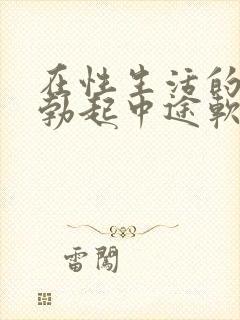 在性生活的
勃起中途軟
雷闖